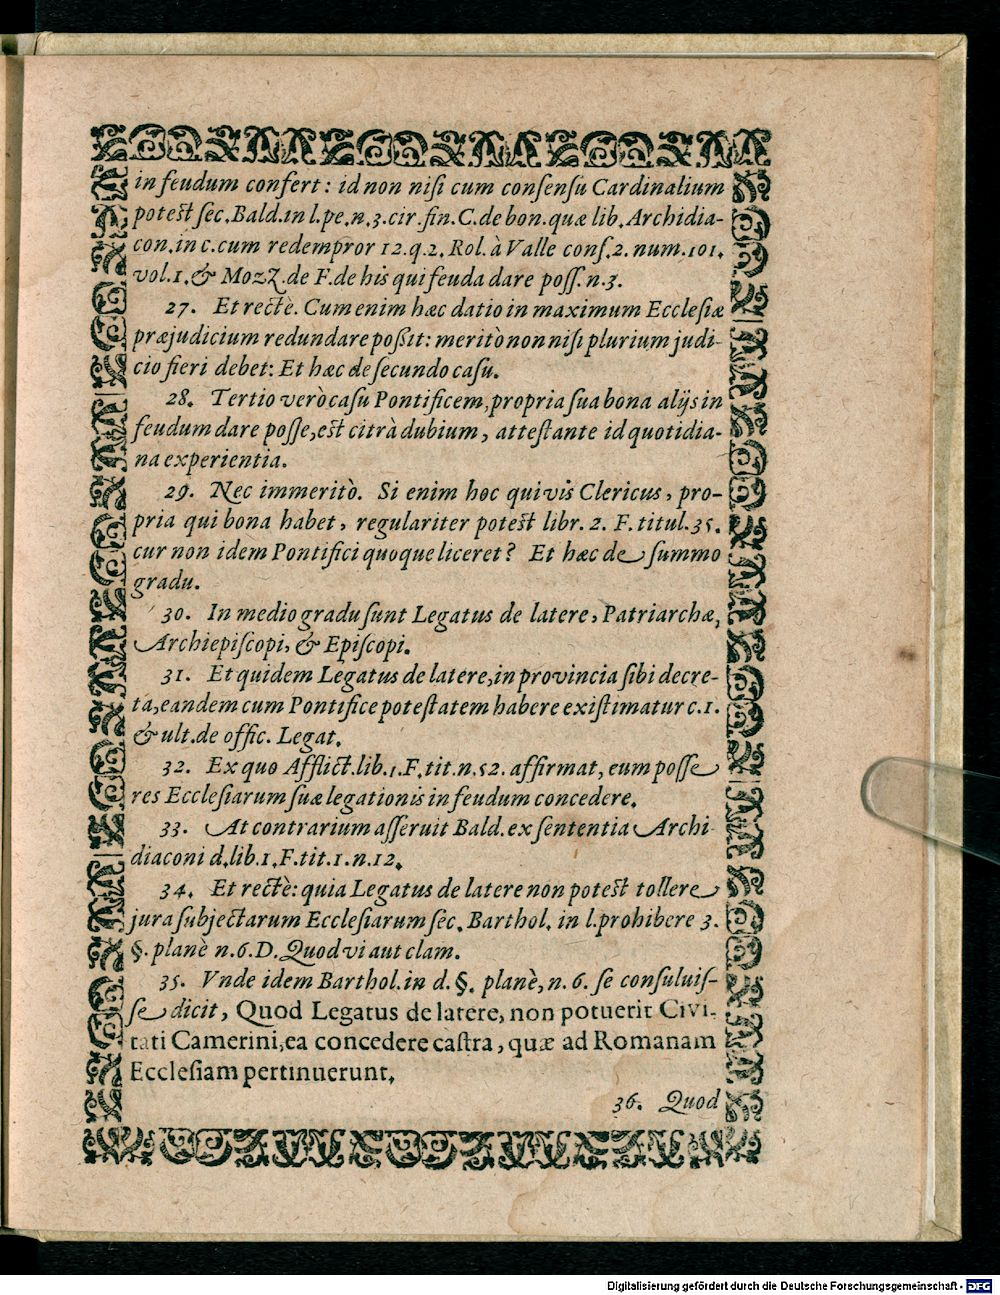 in feudum confert: id non niſi cum conſenſu Cardinalium
poteſt ſec. Bald. in l. pe. n. 3. cir. fin. C. de bon. quæ lib. Archidia-
con. in c. cum redempror 12. q. 2. Rol. à Valle conſ. 2. num. 101.
vol. 1. & Mozz. de F. de his qui feuda dare poſſ. n. 3.
27. Et rectè. Cum enim hæc datio in maximum Eccleſiæ
præjudicium redundare poſſit: meritò non niſi plurium judi-
cio fieri debet: Et hæc de ſecundo caſu.
28. Tertio verò caſu Pontificem, propria ſua bona alijs in
feudum dare poſſe, eſt citrà dubium, atteſtante id quotidia-
na experientia.
29. Nec immeritò. Si enim hoc quivis Clericus, pro-
pria qui bona habet, regulariter poteſt libr. 2. F. titul. 35.
cur non idem Pontifici quoque liceret? Et hæc de ſummo
gradu.
30. In medio gradu ſunt Legatus de latere, Patriarchæ,
Archiepiſcopi, & Epiſcopi.
31. Et quidem Legatus de latere, in provincia ſibi decre-
ta, eandem cum Pontifice poteſtatem habere exiſtimatur c. 1.
& ult. de offic. Legat.
32. Ex quo Afflict. lib. 1. F. tit. n. 52. affirmat, eum poſſe
res Eccleſiarum ſuæ legationis in feudum concedere.
33. At contrarium aſſeruit Bald. ex ſententia Archi-
diaconi d. lib. 1. F. tit. 1. n. 12.
34. Et rectè: quia Legatus de latere non poteſt tollere
jura ſubjectarum Eccleſiarum ſec. Barthol. in l. prohibere 3.
§. planè n. 6. D. Quod vi aut clam.
35. Vnde idem Barthol. in d. §. planè, n. 6. ſe conſuluiſ-
ſe dicit, Quod Legatus de latere, non potuerit Civi-
tati Camerini, ea concedere caſtra, quæ ad Romanam
Eccleſiam pertinuerunt.
36. Quod
Digitalisierung gefördert durch die Deutsche Forschungsgemeinschaft - DFG